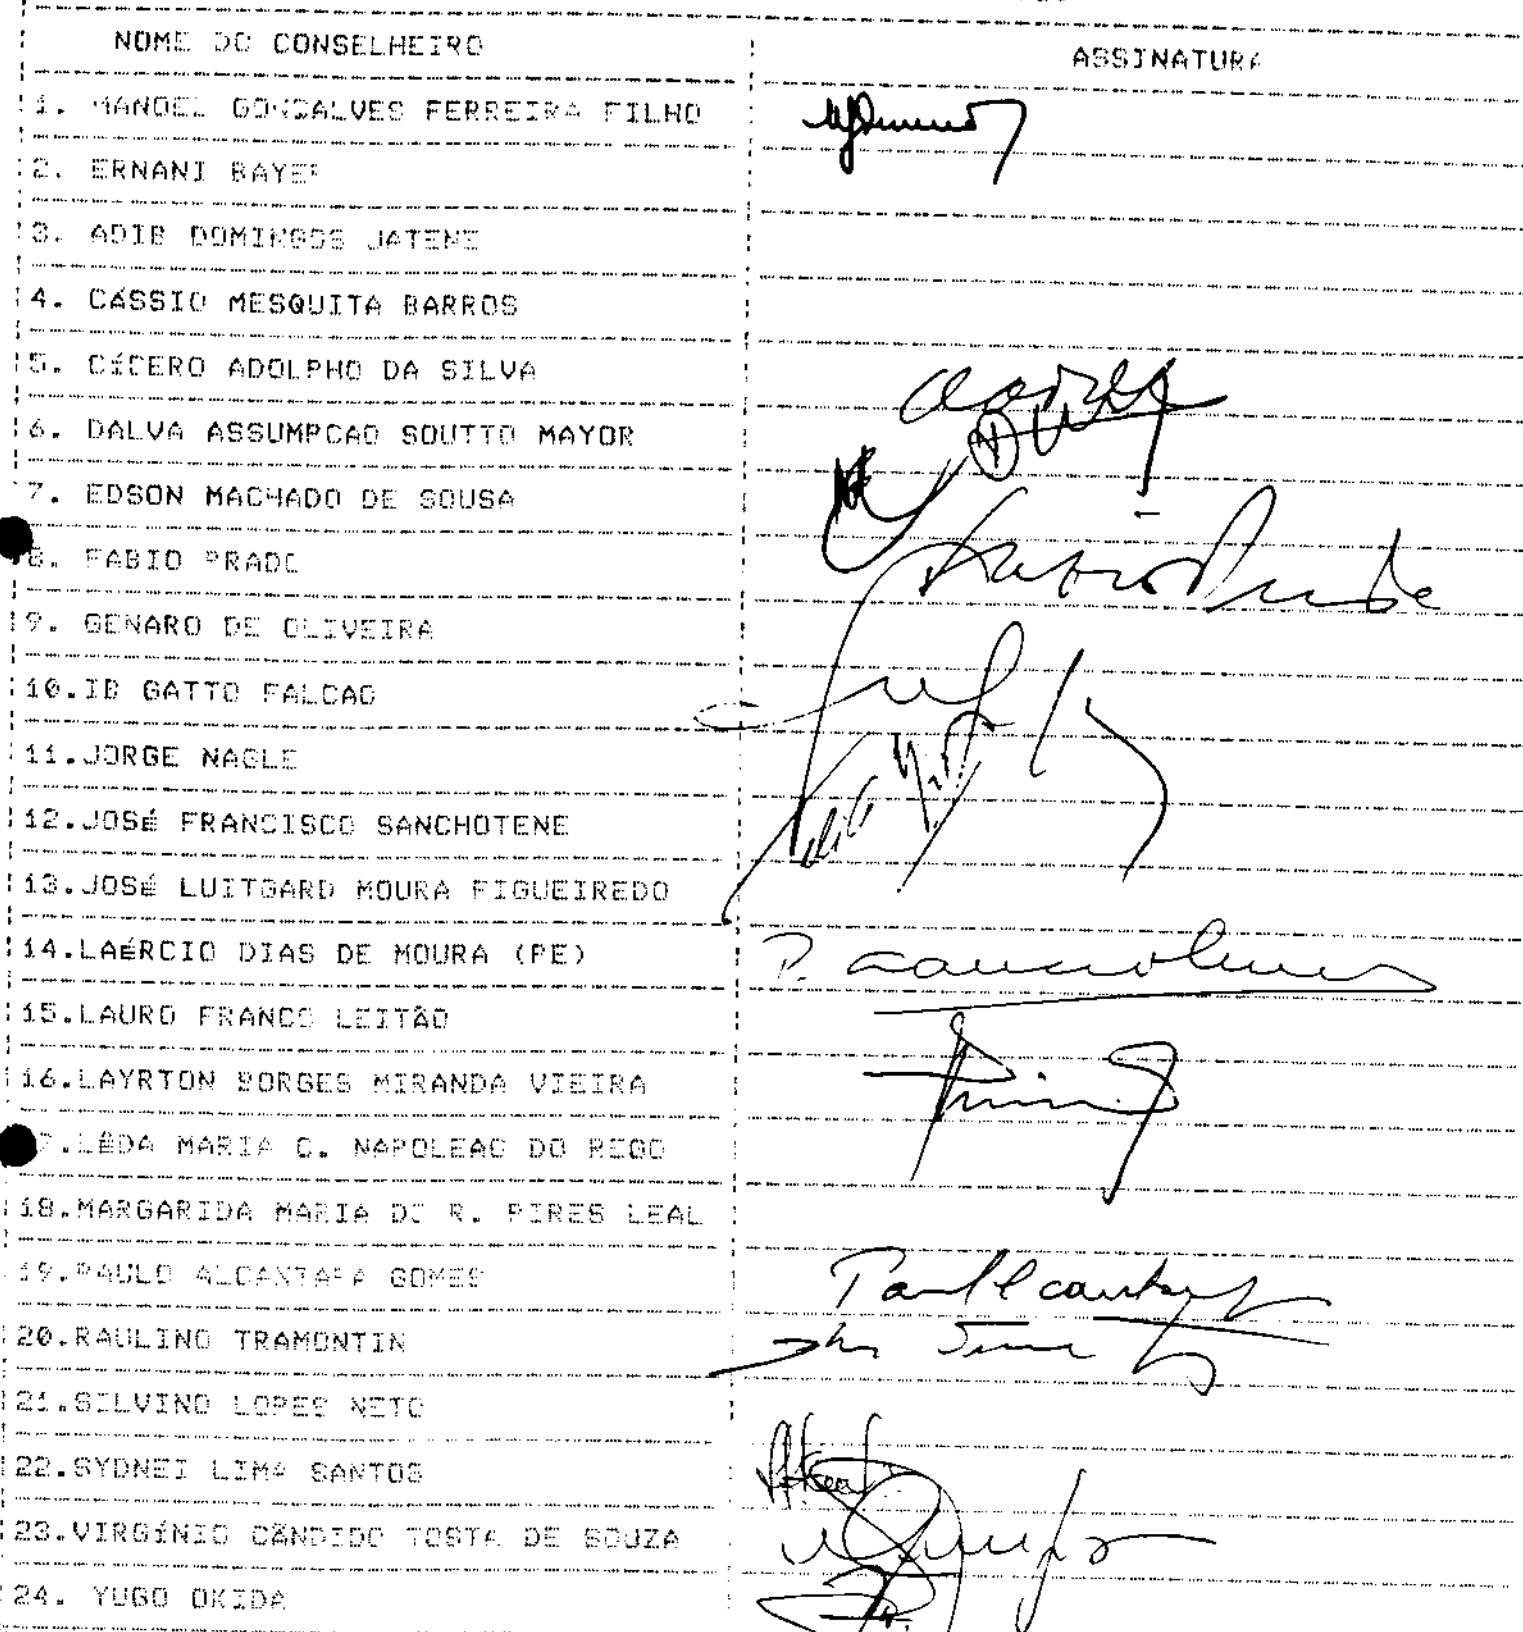 NOME DO CONSELHEIRO ASSINATURA
1. MANOEL GONÇALVES FERREIRA FILHO
2. ERNANI BAYER
3. ADIB DOMINGOS JATENE
4. CÁSSIO MESQUITA BARROS
5. CÍCERO ADOLPHO DA SILVA
6. DALVA ASSUMPCAO SOUTTO MAYOR
7. EDSON MACHADO DE SOUSA
8. FABIO PRADO
9. GENARO DE OLIVEIRA
10.IB GATTO FALCAO
11.JORGE NAGLE
12.JOSÉ FRANCISCO SANCHOTENE
13.JOSÉ LUITGARD MOURA FIGUEIREDO
14.LAÉRCIO DIAS DE MOURA (PE)
15.LAURO FRANCO LEITÃO
16.LAYRTON BORGES MIRANDA VIEIRA
7.LÊDA MARIA C. NAPOLEAO DO REGO
18.MARGARIDA MARIA DO R. PIRES LEAL
19.PAULO ALCANTARA GOMES
20.RAULINO TRAMONTIN
21.SILVINO LOPES NETO
22.SYDNEI LIMA SANTOS
23.VIRGÍNIO CÂNDIDO TOSTA DE SOUZA
24. YUGO OKIDA